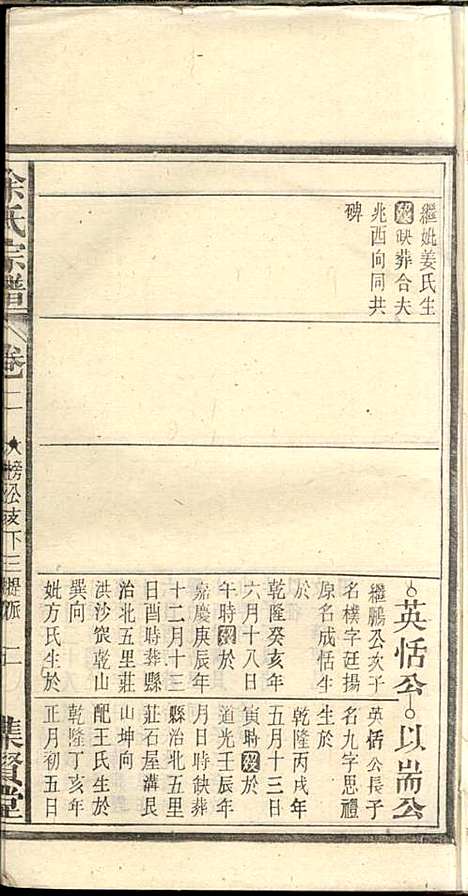 繼妣姜氏生
歿缺葬合夫
兆西向同共
碑
英恬公
繼鵬公次子
名樸字廷揚
原名成恬生
於
乾隆癸亥年
六月十八日
午時歿於
嘉慶庚辰年
十二月十三
日酉時葬縣
治北五里莊
洪沙㟁乾山
巽向
妣方氏生於
以耑公
英恬公長子
名九字思禮
生於
乾隆丙戌年
五月十三日
寅時歿於
道光壬辰年
月日時缺葬
縣治北五里
莊石屋溝艮
山坤向
配王氏生於
乾隆丁亥年
正月初五日
余氏宗譜
卷二
榜公支下三緹派
二
集賢堂